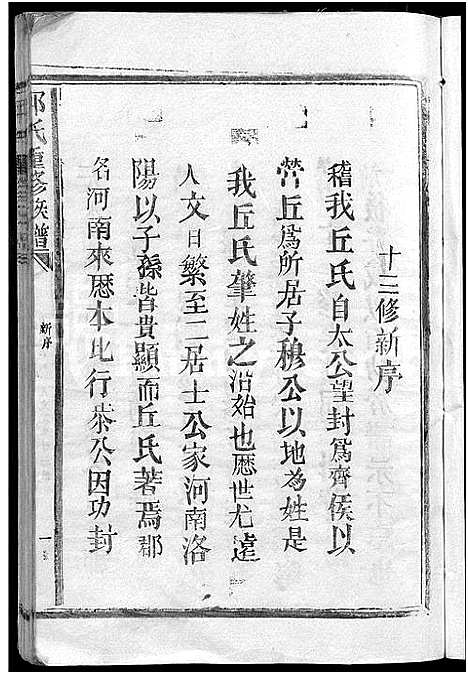 十三修新序
稽我丘氏自太公望封爲齊侯以
營丘爲所居子穆公以地為姓是
我丘氏肇姓之沿始也歷世尤遠
人文日繁至二居士公家河南洛
陽以子孫皆貴顯而丘氏著焉郡
名河南來歷本此行恭公因功封
氏重修族譜
新序
一